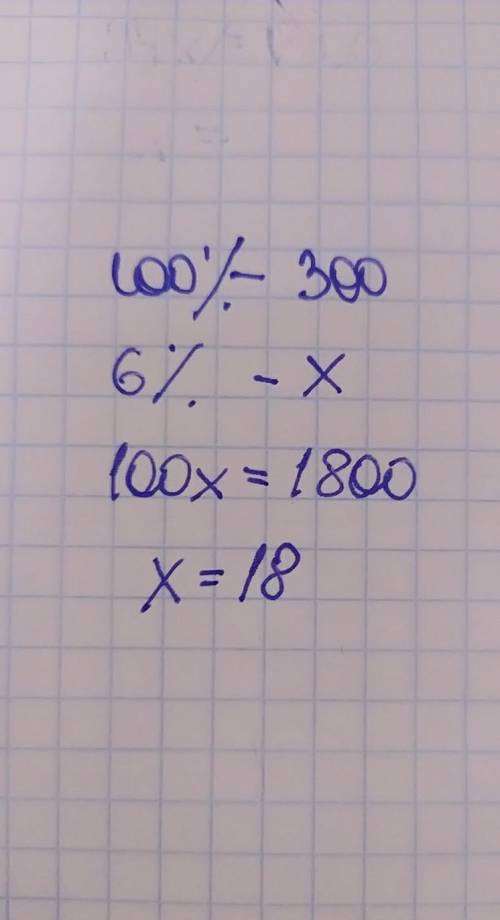 100% - 300
6% - x
100x = 1800
x = 18